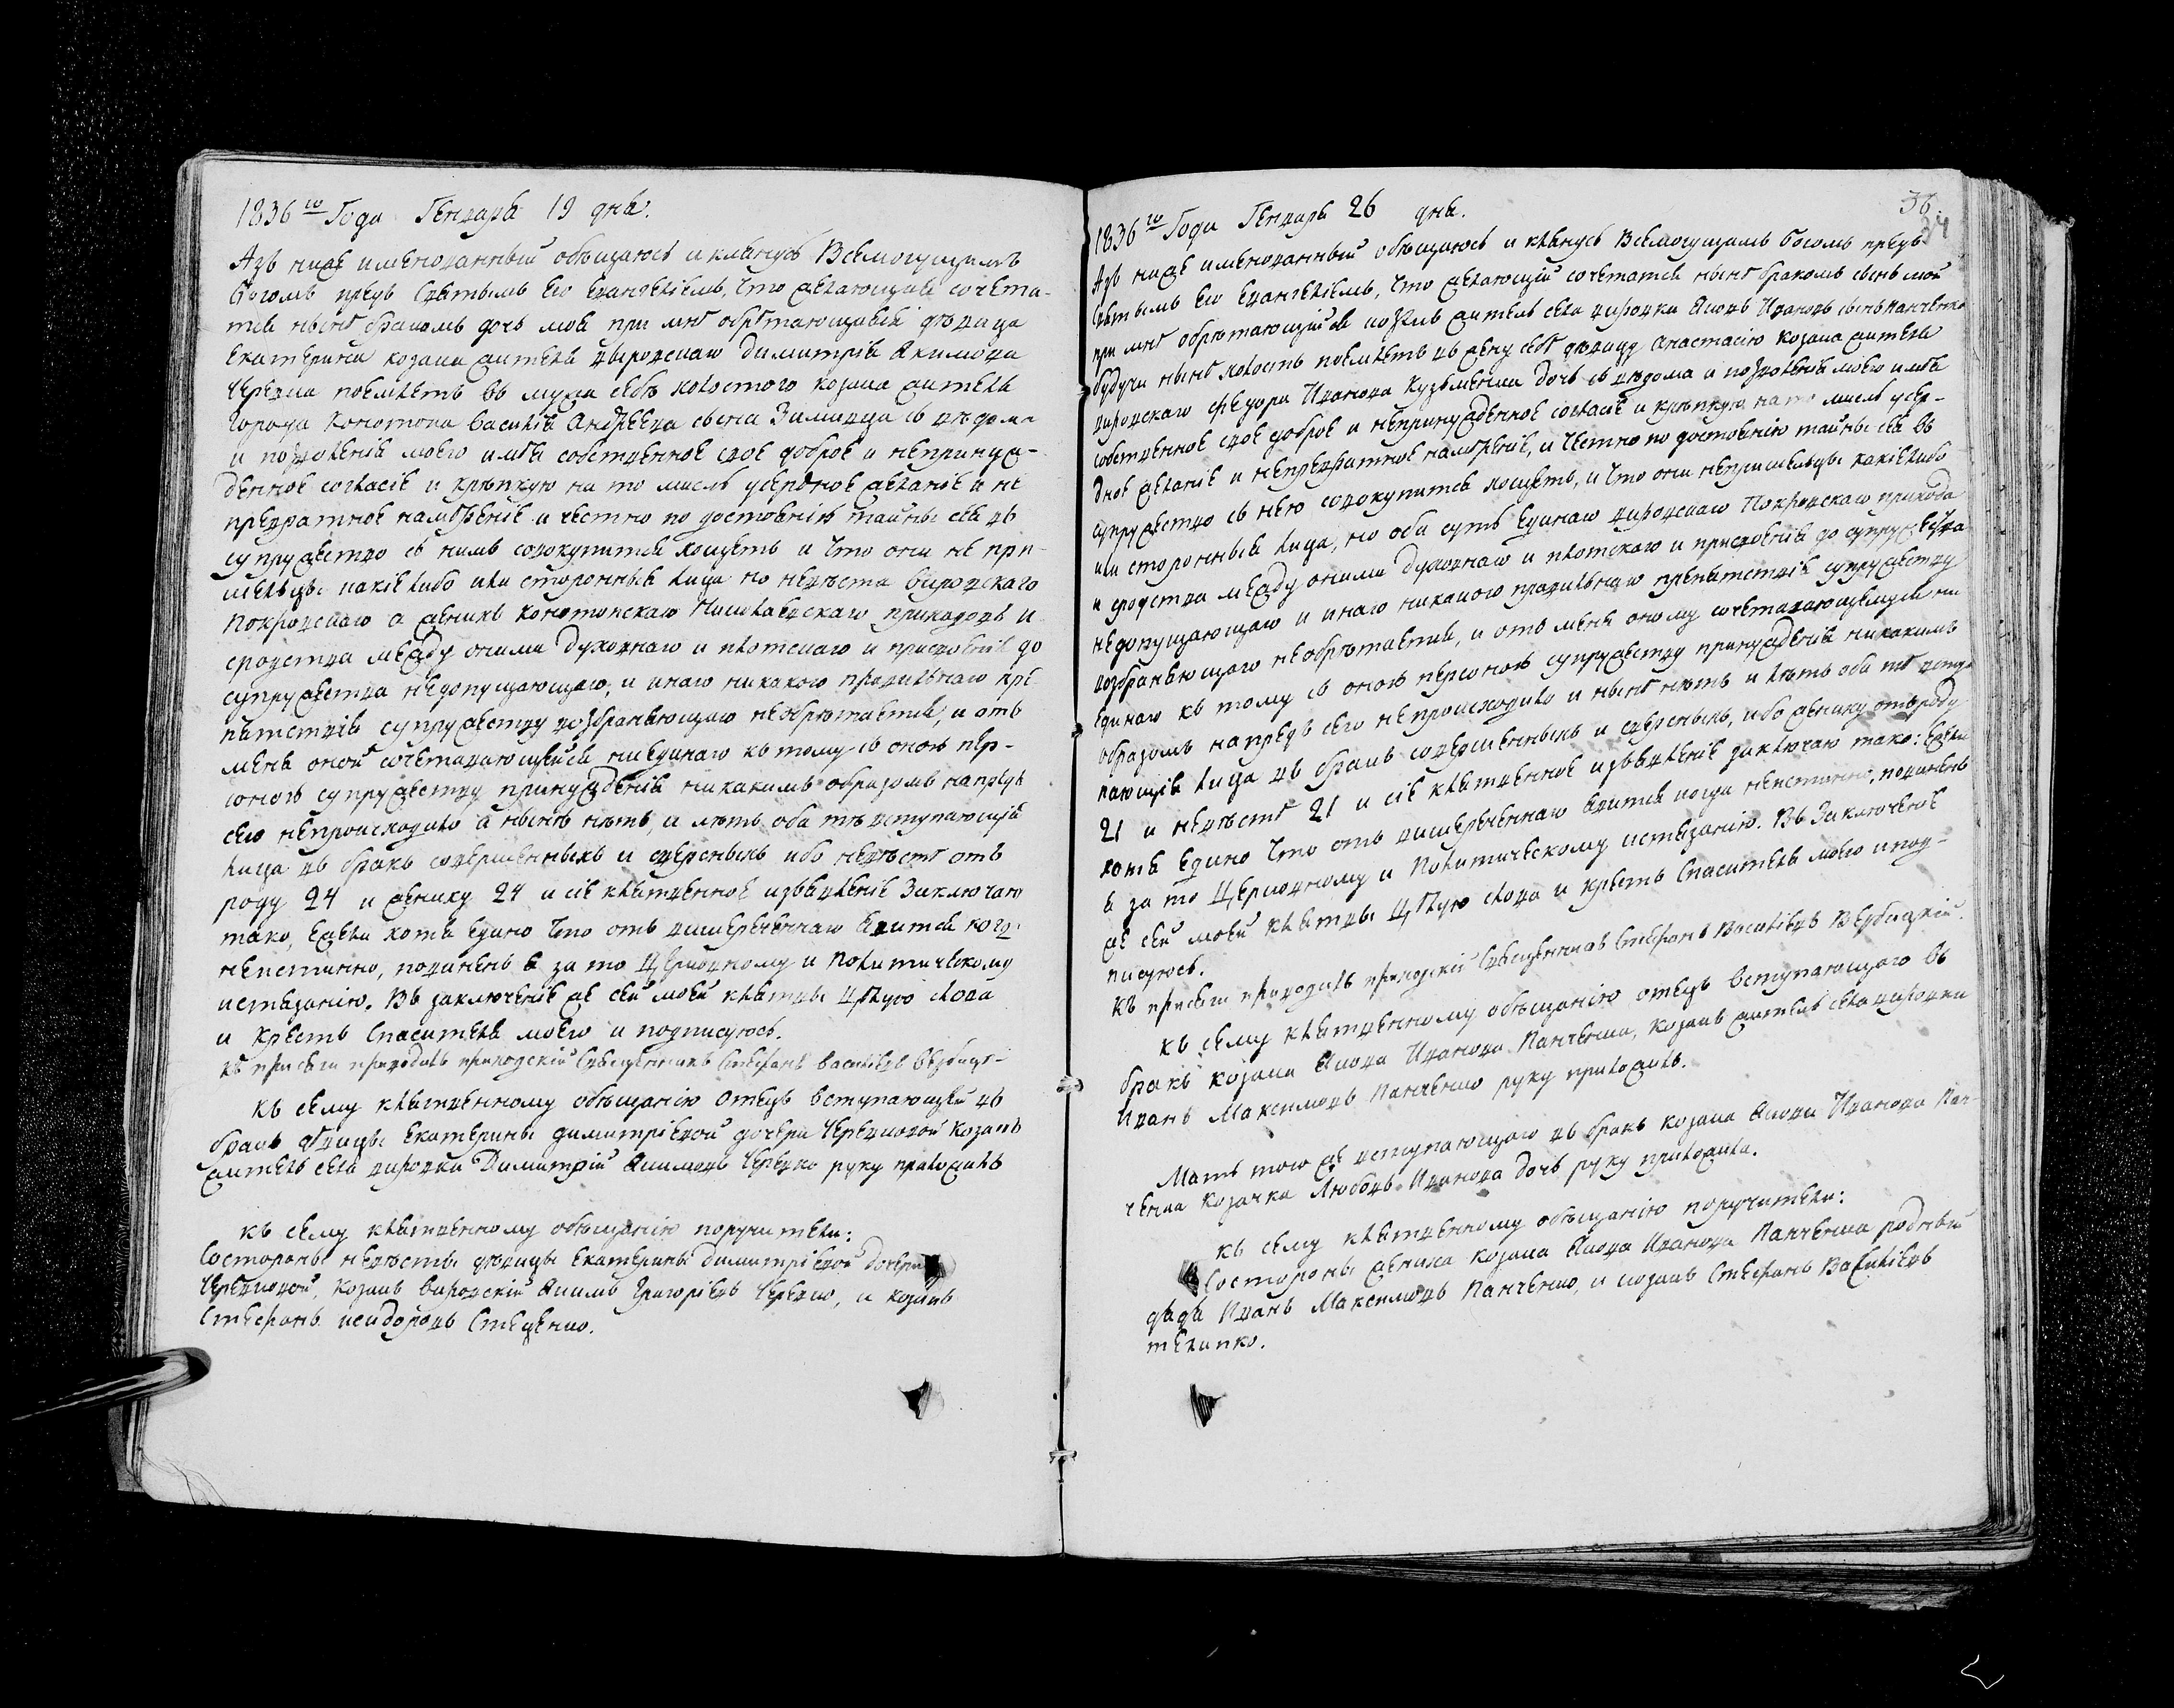 1836го Года Генваря 19 дня.
Азъ ниже именованный обѣщаюсь и клянусь Всемогущимъ
Богомъ предъ Святымъ Его Евангеліемъ, что желающая сочета-
тся нынѣ бракомъ дочь моя при мнѣ обрѣтающаяся дѣвица
Екатерина козака жителя вировскаго Димитрія Якимова
Черевка поемлетъ въ мужа себѣ холостого козака жителя
города Конотопа Василія Андреева сына Зимивца съ вѣдома
и позволенія моего имѣя собственное свое доброе и непринуж-
денное согласіе и крѣпкую на то мысль усердное желаніе и не
превратное намѣреніе и честно по достоянію тайны сея въ
супружество съ нимъ совокупится хощетъ и что они не при-
шельцы какіелибо или сторонныя лица но невѣста вировскаго
Покровскаго а женихъ Конотопскаго Николаевскаго приходовъ и
сродства между оними духовнаго и плотскаго и присвоенія до
супружества недопущающаго, и инаго никакого правильнаго пре
пятствія супружеству возбраняющаго необрѣтается, и отъ
мене оной сочетавающейся ниединаго къ тому съ оною пер-
соною супружеству принужденія никакимъ образомъ напредъ
сего непроисходило а нынѣ нѣтъ, и лѣтъ оба тѣ вступающія
лица въ бракъ совершенныхъ и сверсныхъ ибо невѣстѣ отъ
роду 24 и жениху 24 и сіе клятвенное изъявленіе заключаю
тако, ежели хотя едино что отъ вишереченнаго явится когда
неистинно, повиненъ я за то Церковному и Политическому
истязанію. Въ заключеніе же сей моей клятвы цѣлую слова
и Крестъ Спасителя моего и подписуюсь.
къ присяги приводилъ приходскій Священникъ Стефанъ Василіевъ Вербицк-
Къ сему клятвенному обѣщанію отецъ вступающей въ
бракъ дѣвицы Екатерины Димитріевой дочери Черевковой козакъ
житель села вировки Димитрій Якимовъ Черевко руку приложилъ
Къ сему клятвенному обѣщанію поручители:
Состороны невѣсты дѣвицы Екатерины Димитріевой дочери
Черевковой, козакъ вировскій Якимъ Григоріевъ Черевко, и козакъ
Стефанъ Исидоровъ Стеценко.
36.
34
1836го Года Генваря 26 дня.
Азъ ниже именованный обѣщаюсь и клянусь Всемогущимъ Богомъ предъ
Святымъ Его Евангеліемъ, что желающій сочетатся нынѣ бракомъ сынъ мой
при мнѣ обрѣтающійся козакъ житель села вировки Яковъ Ивановъ сынъ Панченко
будучи нынѣ холостъ поемлетъ въ жену себѣ дѣвицу Анастасію козака жителя
вировскаго Федора Иванова Кузьменка дочь съ вѣдома и позволенія моего имѣя
собственное свое доброе и непринужденное согласіе и крѣпкую на то мысль усер-
дное желаніе и непревратное намѣреніе, и честно по достоянію тайны сея въ
супружество съ нею совокупится хощетъ, и что они непришельцы какіелибо
или сторонныя лица, но оба суть единаго вировскаго Покровскаго прихода
и сродства между оними духовнаго и плотскаго и присвоенія до супружества
недопущающаго и инаго никакого правильнаго препятствія супружеству
возбраняющаго необрѣтается, и отъ мене оному сочетавающемуся ни
единаго къ тому съ оною персоною супружеству принужденія никакимъ
образомъ напредъ сего непроисходило и нынѣ нѣтъ и лѣтъ оба тѣ всту-
пающія лица въ бракъ совершенныхъ и сверсныхъ, ибо жениху отъ роду
21 и невѣстѣ 21 и сіе клятвенное изъявленіе заключаю тако: ежели
хотя едино что отъ вишереченнаго явится когда неистинно, повиненъ
я за то Церковному и Политическому истязанію. Въ Заключеніе
же сей моей клятвы цѣлую слова и крестъ Спасителя моего и под-
писуюсь.
Къ присяги приводилъ приходскій Священникъ Стефанъ Василіевъ Вербицкій.
Къ сему клятвенному обѣщанію отецъ вступающаго въ
бракъ козака Якова Иванова Панченка, козакъ житель села вировки
Иванъ Максимовъ Панченко руку приложилъ.
Мать того же вступающаго въ бракъ козака Якова Иванова Пан-
ченка козачка Любовъ Иванова дочь руку приложила.
Къ сему клятвенному обѣщанію поручители:
Состороны жениха козака Якова Иванова Панченка родный
дядя Иванъ Максимовъ Панченко, и козакъ Стефанъ Василіевъ
телипко.